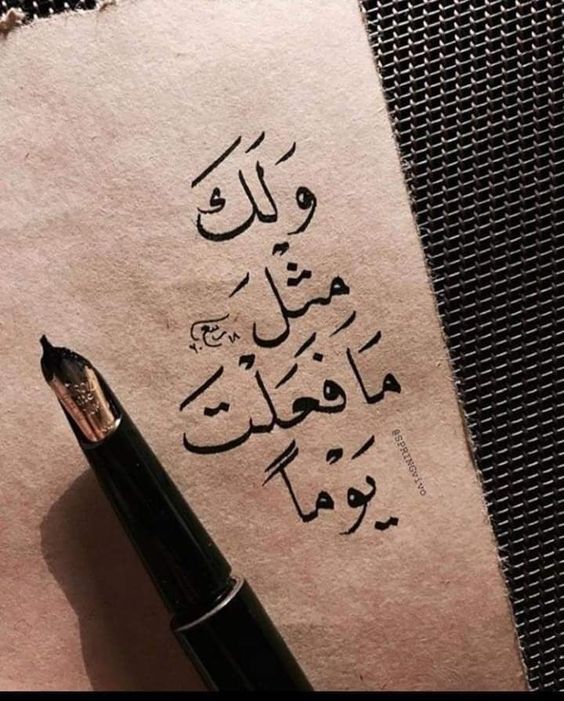 وَلَكَ
مثْلَ
مَا فَعَلْتَ
يَوْماً
@SPRINGVIVO